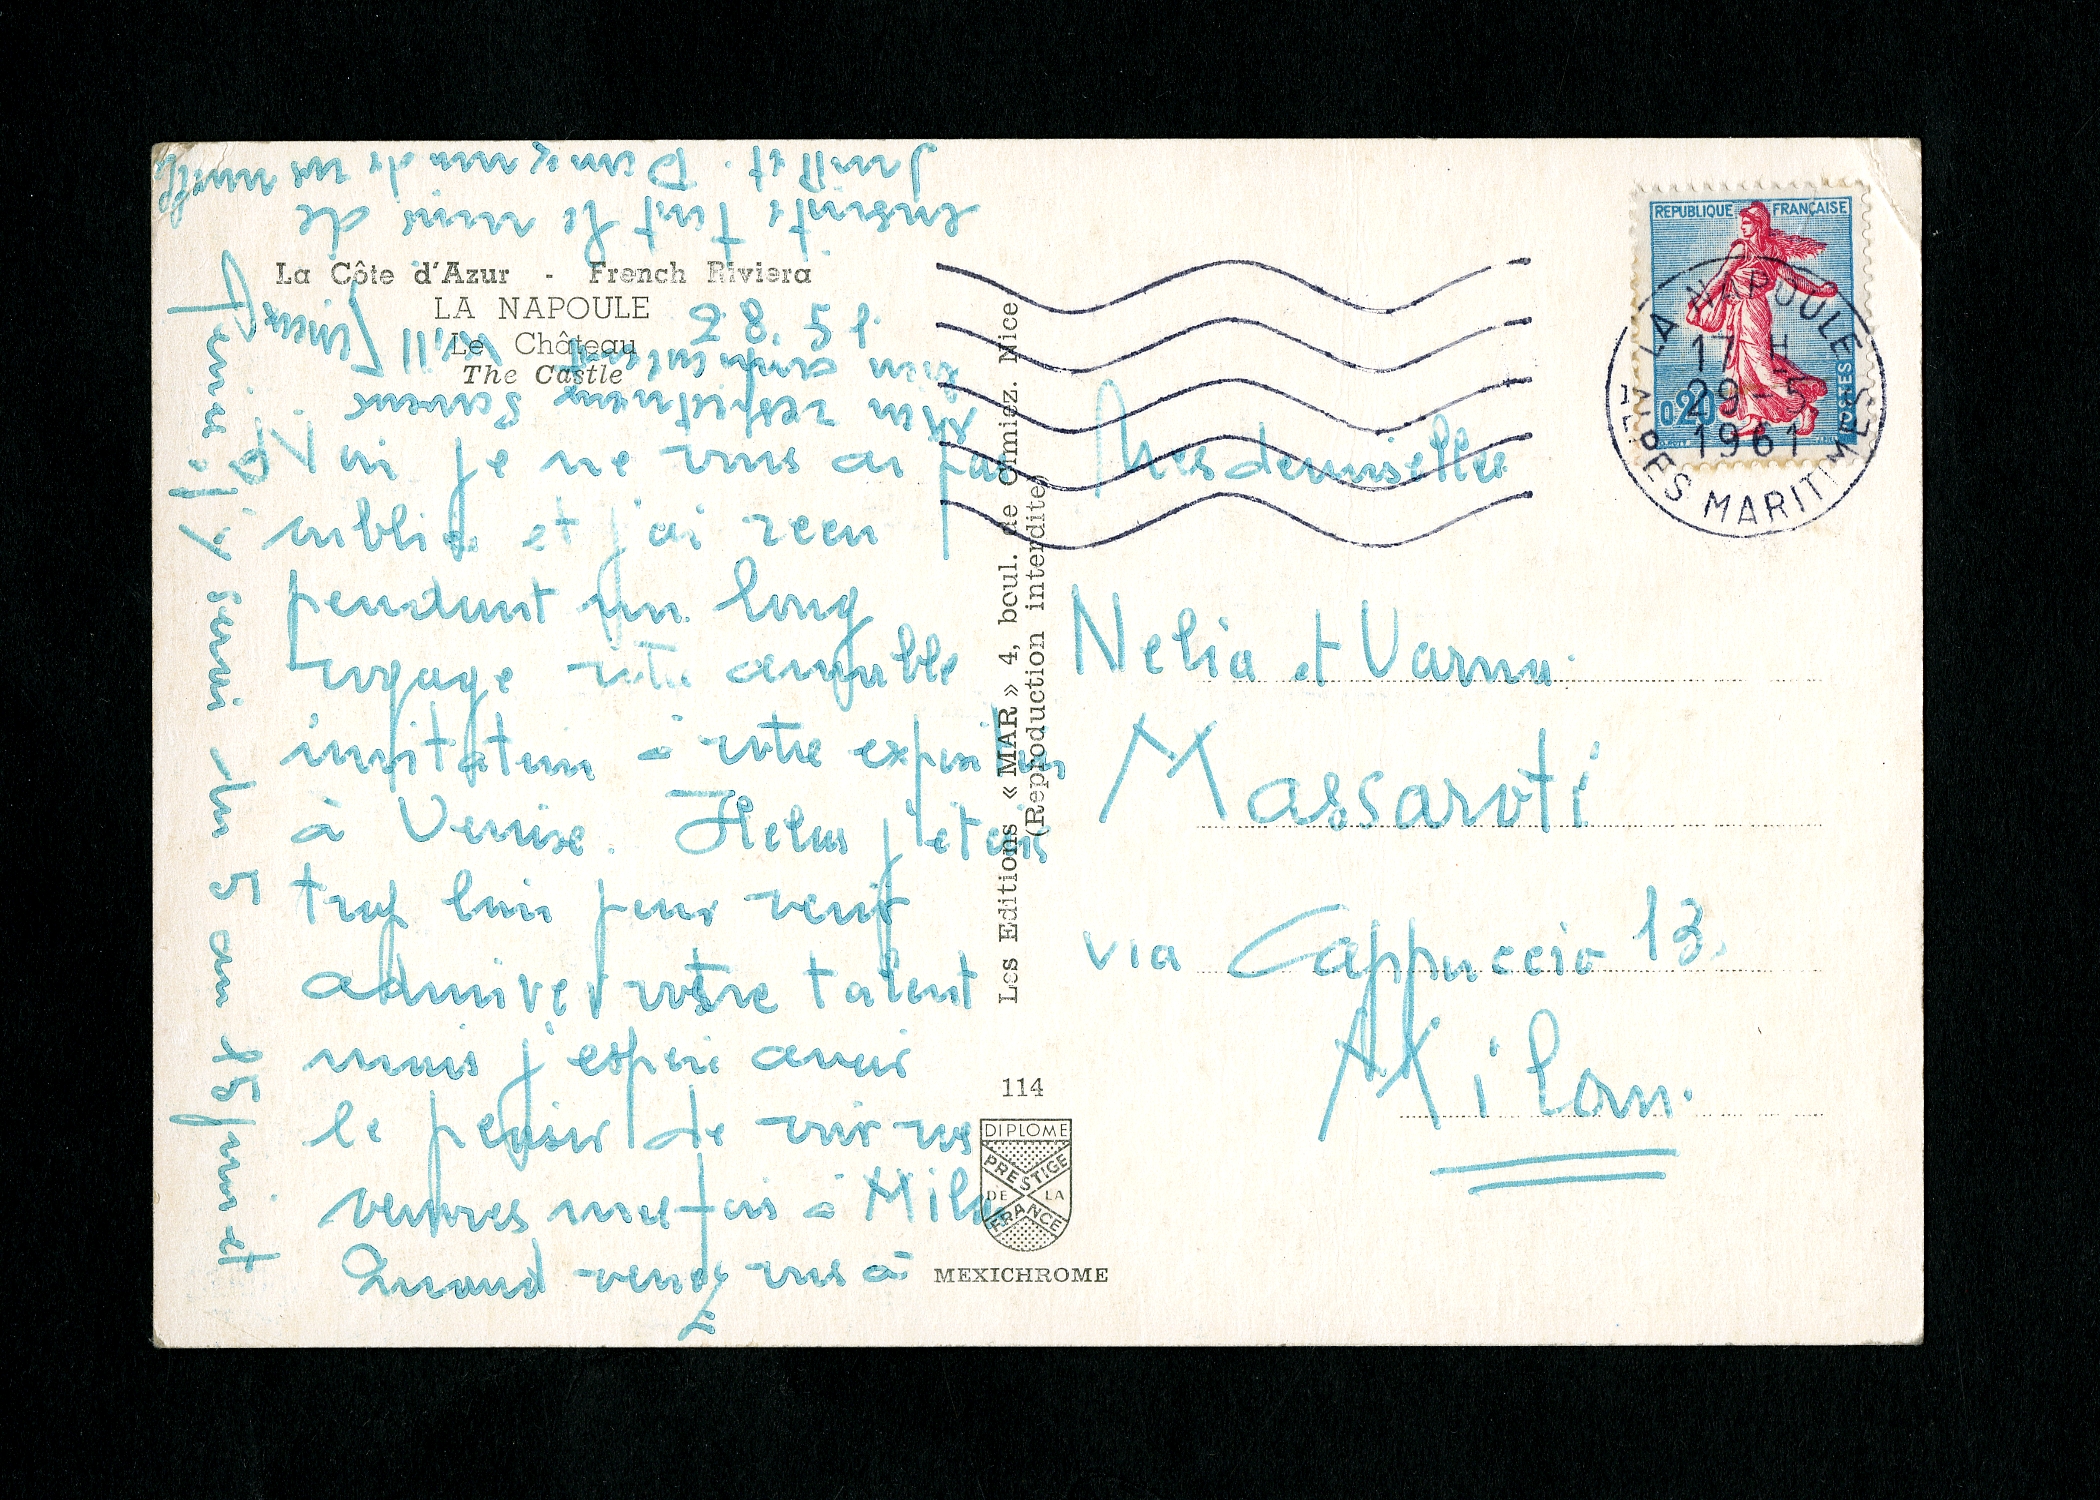 La Côte d'Azur - French Riviera
LA NAPOULE
Le Château
The Castle
28.5
je ne vous ai pas
oublié et j'ai reçu
pendant un long
voyage votre aimable
invitation à votre exposition
à Venise. Helas j'etais
trop loin pour venir
admirer votre talent
mais j'espère avoir
le plaisir de voir vos
œuvres une fois à Milan
Quand venez vous à
Venise? J'y serai du 5 au 15 juin et
ensuite tout le mois de
Juillet. Donnez moi de vos nouvelles
Mon respectueux souvenir
bien
Les Editions « MAR » 4, boul. de Cimiez. Nice
(Reproduction interdite)
114
DIPLOME
PRESTIGE
DE LA
FRANCE
MEXICHROME
REPUBLIQUE FRANÇAISE
0,20
POSTES
LA NAPOULE
17 H
29-5
1961
ALPES MARITIMES
Mesdemoiselles
Nelia et Varna
Massaroti
via Cappuccio 13.
Milan.